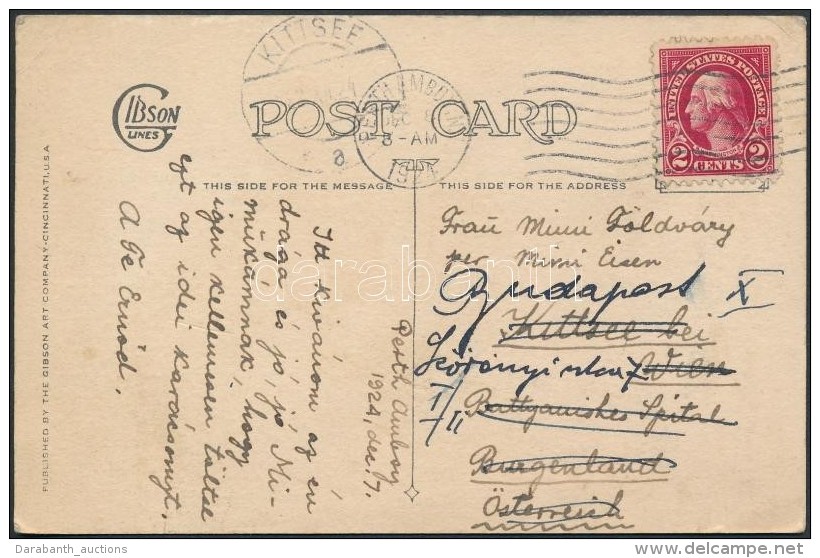 KITTSEE
a
PERTH AMBOY N.J.
DEC
8-AM
1924
UNITED STATES POSTAGE
WASHINGTON
2 CENTS 2
GIBSON
LINES
POST CARD
THIS SIDE FOR THE MESSAGE
THIS SIDE FOR THE ADDRESS
PUBLISHED BY THE GIBSON ART COMPANY-CINCINNATI, U.S.A.
Perth Amboy
1924, dec. 7.
Itt kivánom az én
drága és jó, jó Mi-
mikámnak, hogy
igen kellemesen töltse
ezt az idei karácsonyt.
A Te Ernőd.
Frau Mimi Földváry
per Mimi Eisen
Budapest X
Kittsee bei
Wien
Battyanishes Spital
Burgenland
Österreich
darabanth
Darabanth_auctions
delcampe.net